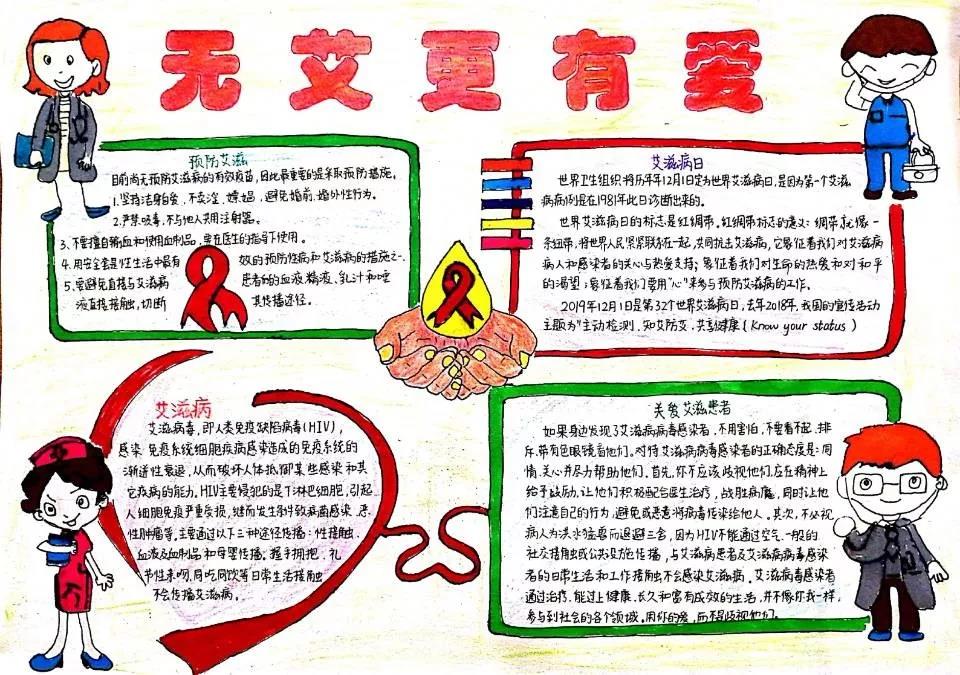 无艾更有爱
预防艾滋
目前尚无预防艾滋病的有效疫苗,因此最重要的是采取预防措施。
1.坚持洁身自爱,不卖淫、嫖娼,避免婚前、婚外性行为。
2.严禁吸毒,不与他人共用注射器。
3.不要擅自输血和使用血制品,要在医生的指导下使用。
4.用安全套是性生活中最有效的预防性病和艾滋病的措施之一.
5.要避免直接与艾滋病患者的血液、精液、乳汁和
液直接接触,切断其传播途径。
艾滋病日
世界卫生组织将历年年12月1日定为世界艾滋病日,是因为第一个艾滋
病病例是在1981年此日诊断出来的。
世界艾滋病日的标志是红绸带。红绸带标志的意义:绸带就像一
条纽带,将世界人民紧紧联系在一起,共同抗击艾滋病,它象征着我们对艾滋病
病人和感染者的关心与热爱支持;象征着我们对生命的热爱和对和平
的渴望;象征着我们要用"心"来参与预防艾滋病的工作。
2019年12月1日是第32个世界艾滋病日,去年2018年,我国的宣传活动
主题为"主动检测、知艾防艾、共享健康(Know your status)
艾滋病
艾滋病毒,即人类免疫缺陷病毒(HIV),
感染免疫系统细胞
渐进性衰退,从而破坏人体抵御某些感染和其
它疾病的能力。HIV主要侵犯的是T淋巴细胞,引起
人细胞免疫严重受损,继而发生条件致病菌感染、恶
性肿瘤等。主要通过以下三种途径传播:性接触、
血液及血制品和母婴传播;握手拥抱、礼
节性亲吻、同吃同饮等日常生活接触
不会传播艾滋病。
关爱艾滋患者
如果身边发现了艾滋病病毒感染者,不用害怕,不要看不起、排
斥、带有色眼镜看他们。对待艾滋病病毒感染者的正确态度是:同
情、关心并尽力帮助他们。首先,你不应该歧视他们,应在精神上
给予鼓励,让他们积极配合医生治疗,战胜病魔,同时让他
们注意自己的行为,避免或患者将病毒传染给他人。其次,不必视
病人为洪水猛兽而退避三舍,因为HIV不能通过空气、一般的
社交接触或公共设施传播,与艾滋病患者及艾滋病病毒感染
者的日常生活和工作接触不会感染艾滋病。艾滋病毒感染者
通过治疗,能过上健康、长久和富有成效的生活,并不像你我一样,
参与到社会的各个领域。用你的爱,而不是歧视他们。